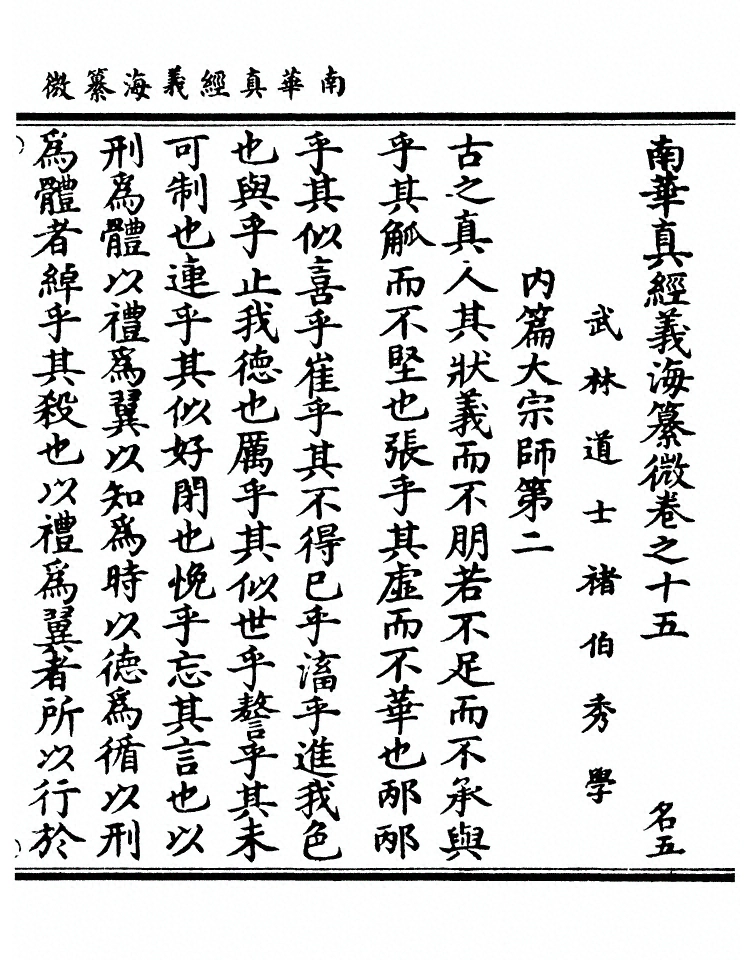 南華真經義海纂微
南華真經義海纂微卷之十五 名五
武林道士褚伯秀學
内篇大宗師第二
古之真人其狀義而不朋若不足而不承與
乎其觚而不堅也張乎其虛而不華也邴邴
乎其似喜乎崔乎其不得已乎滀乎進我色
也與乎止我德也厲乎其似世乎謷乎其未
可制也連乎其似好閉也悗乎忘其言也以
刑爲體以禮爲翼以知爲時以德爲循以刑
爲體者綽乎其殺也以禮爲翼者所以行於